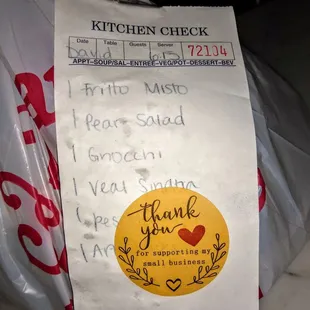 KITCHEN CHECK
Date Table Guests Server
David 72104
APPT-SOUP/SAL-ENTREE-VEG/POT-DESSERT-BEV
1 Fritto Misto
1 Pear Salad
1 Gnocchi
1 Veal
1
1
thank
you
for supporting my
small business